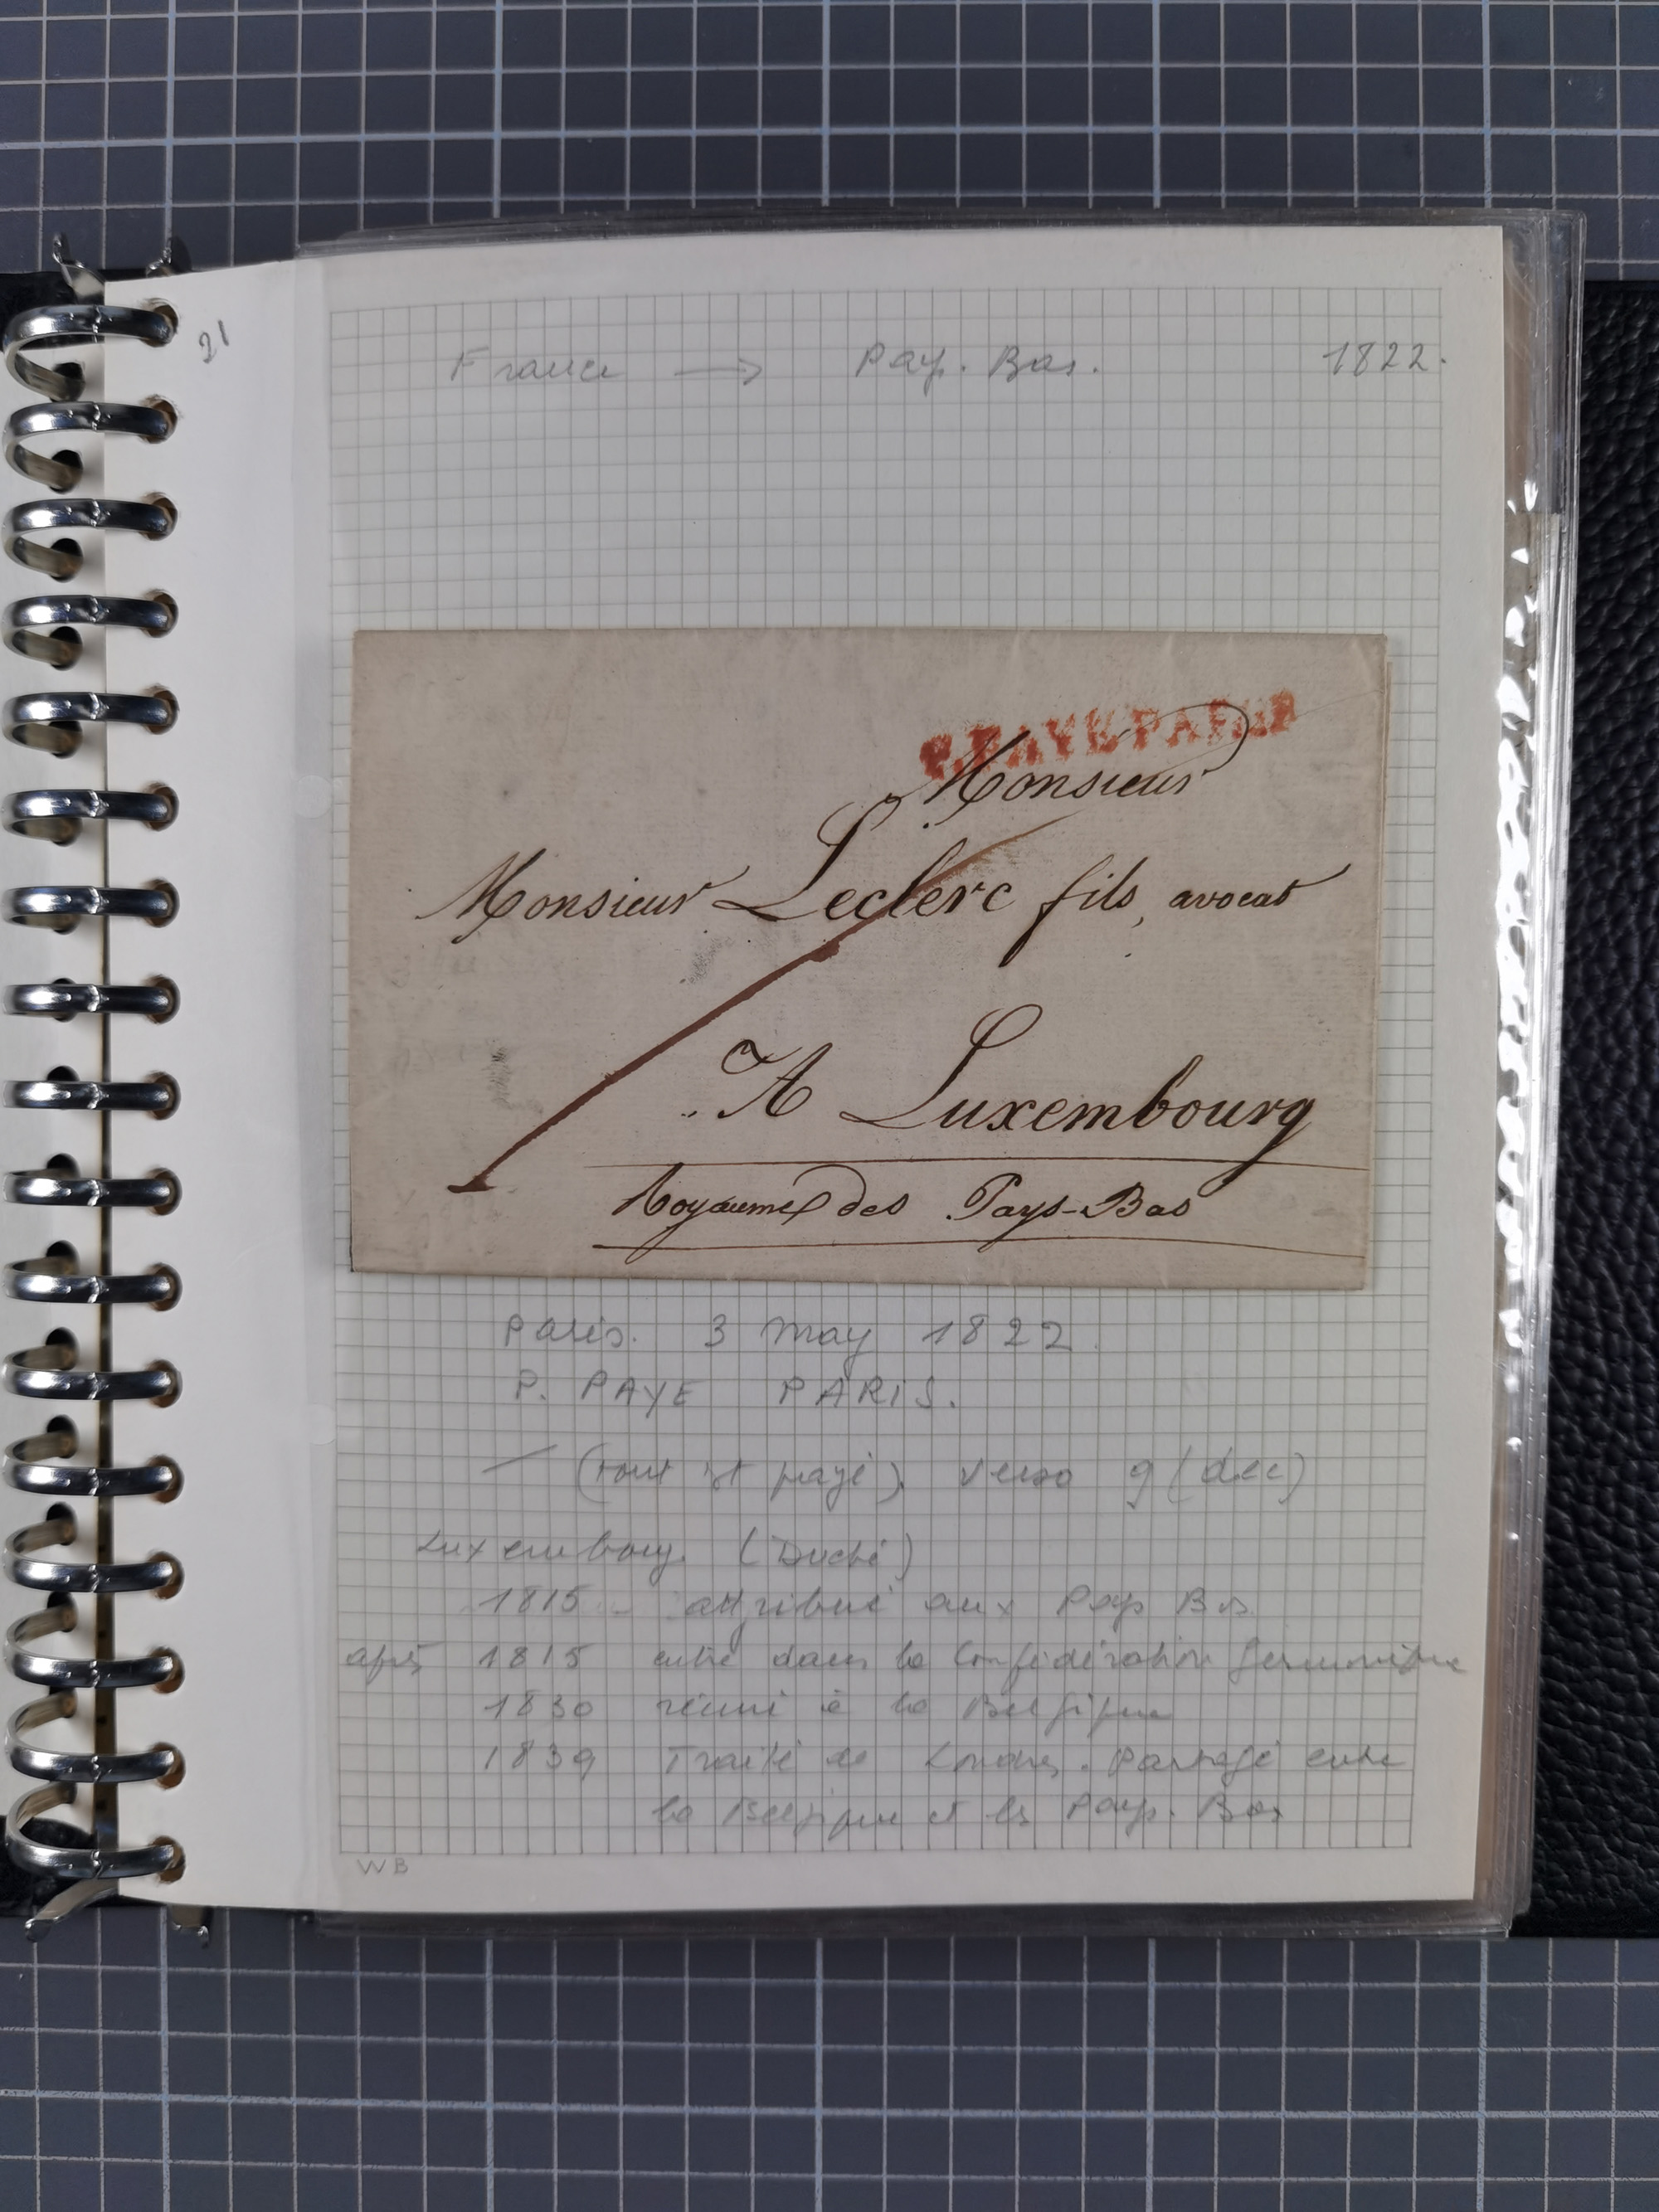 21
France → Pays. Bas. 1822.
P.PAYE PARIS
Monsieur
Monsieur Leclerc fils, avocat
A Luxembourg
Royaume des Pays-Bas
Paris. 3 may 1822.
P. PAYE PARIS.
— (tout est payé). Verso 9 (dec)
Luxembourg. (Duché)
1815 - attribué aux Pays Bas.
après 1815 entre dans la Confédération Germanique
1830 réuni à la Belgique
1839 Traité de Londres. Partagé entre
la Belgique et les Pays. Bas
WB